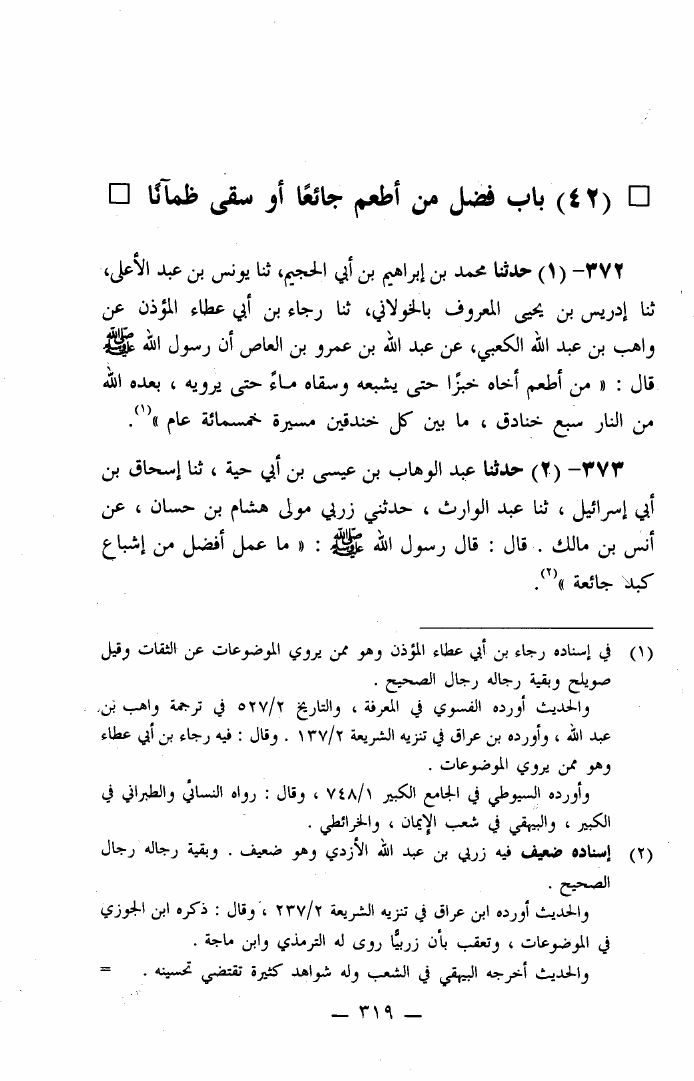 □ (٤٢) باب فضل من أطعم جائعًا أو سقى ظمآنًا □
٣٧٢- (١) حدثنا محمد بن إبراهيم بن أبي الحجيم، ثنا يونس بن عبد الأعلى،
ثنا إدريس بن يحيى المعروف بالخولاني، ثنا رجاء بن أبي عطاء المؤذن عن
واهب بن عبد الله الكعبي، عن عبد الله بن عمرو بن العاص أن رسول الله ﷺ
قال : « من أطعم أخاه خبزًا حتى يشبعه وسقاه مـاءً حتى يرويه ، بعده الله
من النار سبع خنادق ، ما بين كل خندقين مسيرة خمسمائة عام »(١).
٣٧٣- (٢) حدثنا عبد الوهاب بن عيسى بن أبي حية ، ثنا إسحاق بن
أبي إسرائيل ، ثنا عبد الوارث ، حدثني زربي مولى هشام بن حسان ، عن
أنس بن مالك . قال : قال رسول الله ﷺ : « ما عمل أفضل من إشباع
كبد جائعة »(٢).
(١) في إسناده رجاء بن أبي عطاء المؤذن وهو ممن يروي الموضوعات عن الثقات وقيل
صويلح وبقية رجاله رجال الصحيح .
والحديث أورده الفسوي في المعرفة ، والتاريخ ٥٢٧/٢ في ترجمة واهب بن
عبد الله ، وأورده بن عراق في تنزيه الشريعة ١٣٧/٢ . وقال : فيه رجاء بن أبي عطاء
وهو ممن يروي الموضوعات .
وأورده السيوطي في الجامع الكبير ٧٤٨/١ ، وقال : رواه النسائي والطبراني في
الكبير ، والبيهقي في شعب الإيمان ، والخرائطي .
(٢) إسناده ضعيف فيه زربي بن عبد الله الأزدي وهو ضعيف . وبقية رجاله رجال
الصحيح .
والحديث أورده ابن عراق في تنزيه الشريعة ٢٣٧/٢ ، وقال : ذكره ابن الجوزي
في الموضوعات ، وتعقب بأن زربيًّا روى له الترمذي وابن ماجة .
والحديث أخرجه البيهقي في الشعب وله شواهد كثيرة تقتضي تحسينه . =
— ٣١٩ —